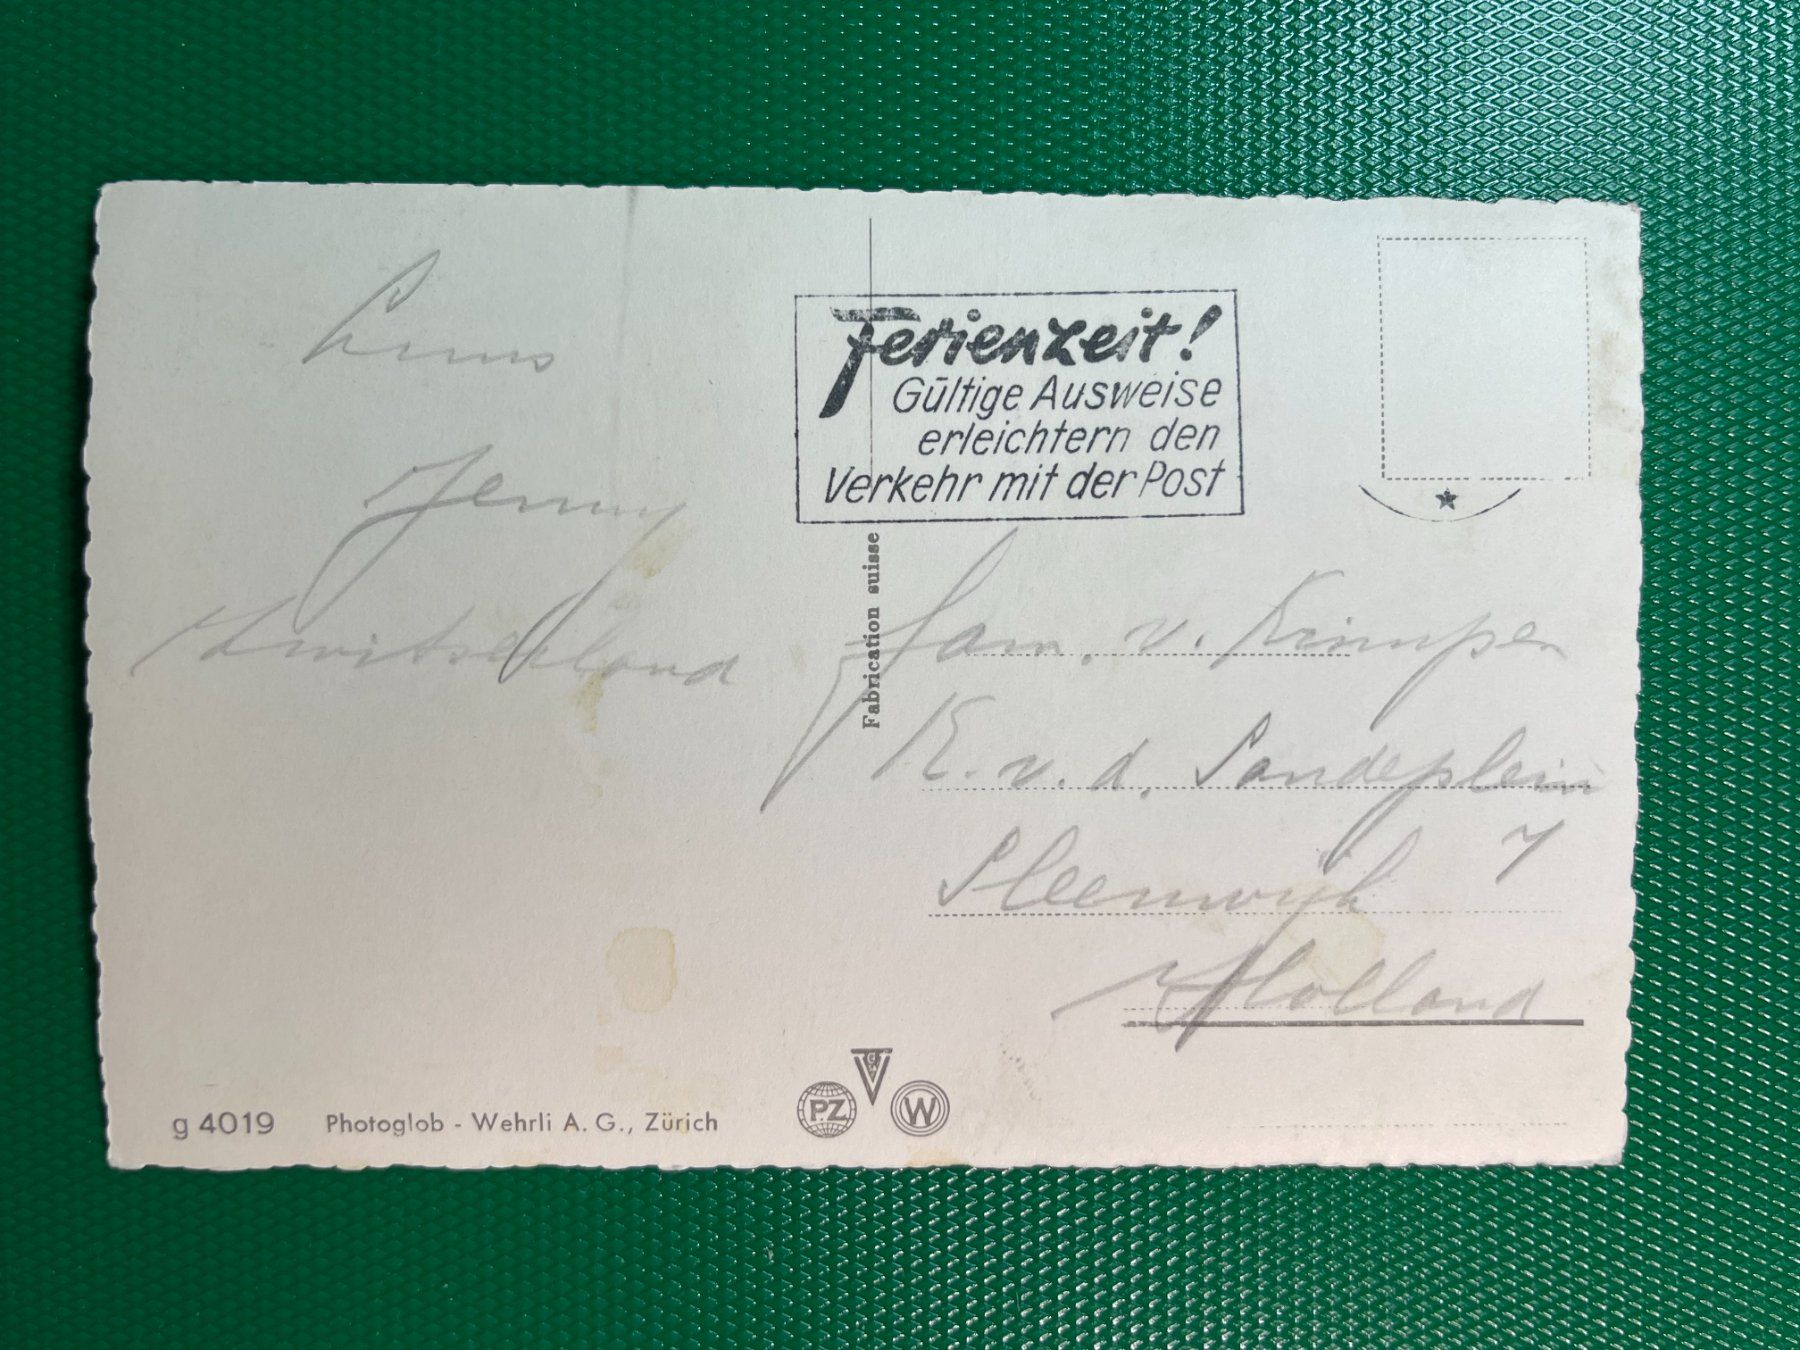 Jenny
Zwitserland
Ferienzeit!
Gültige Ausweise
erleichtern den
Verkehr mit der Post
Fabrication suisse
Fam. v. Krimpen
K. v. d. Sandeplein
7
Sleenwijk
Holland
g 4019 Photoglob - Wehrli A. G., Zürich
PZ
W